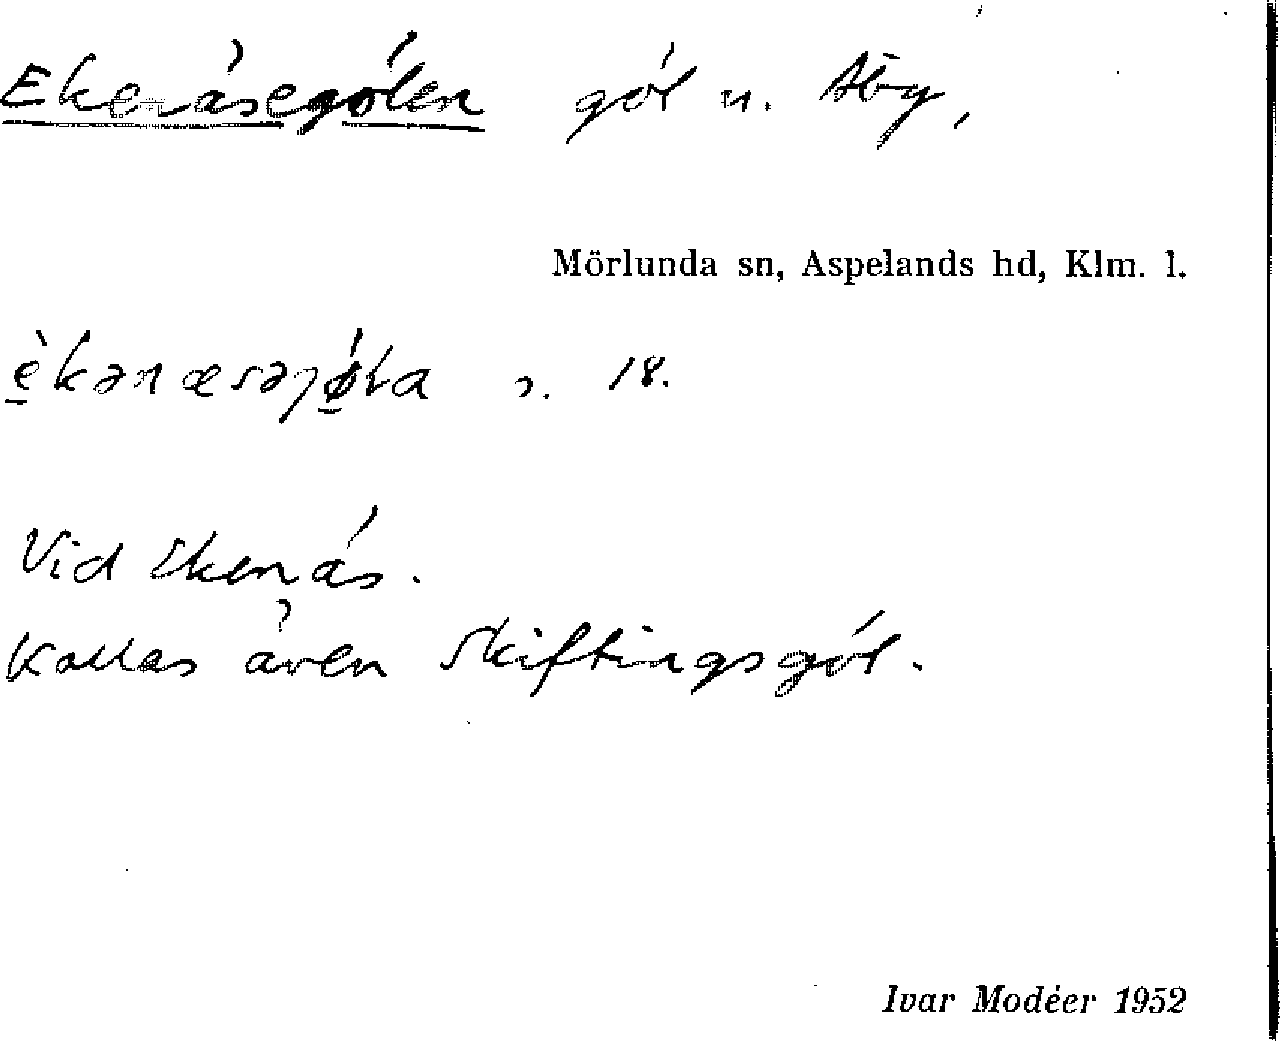 Ekenäsegölen göl n. Åby,
Mörlunda sn, Aspelands hd, Klm. l.
s. 18.
Vid Ekenäs.
Kallas även Skiftingsgöl.
Ivar Modéer 1952